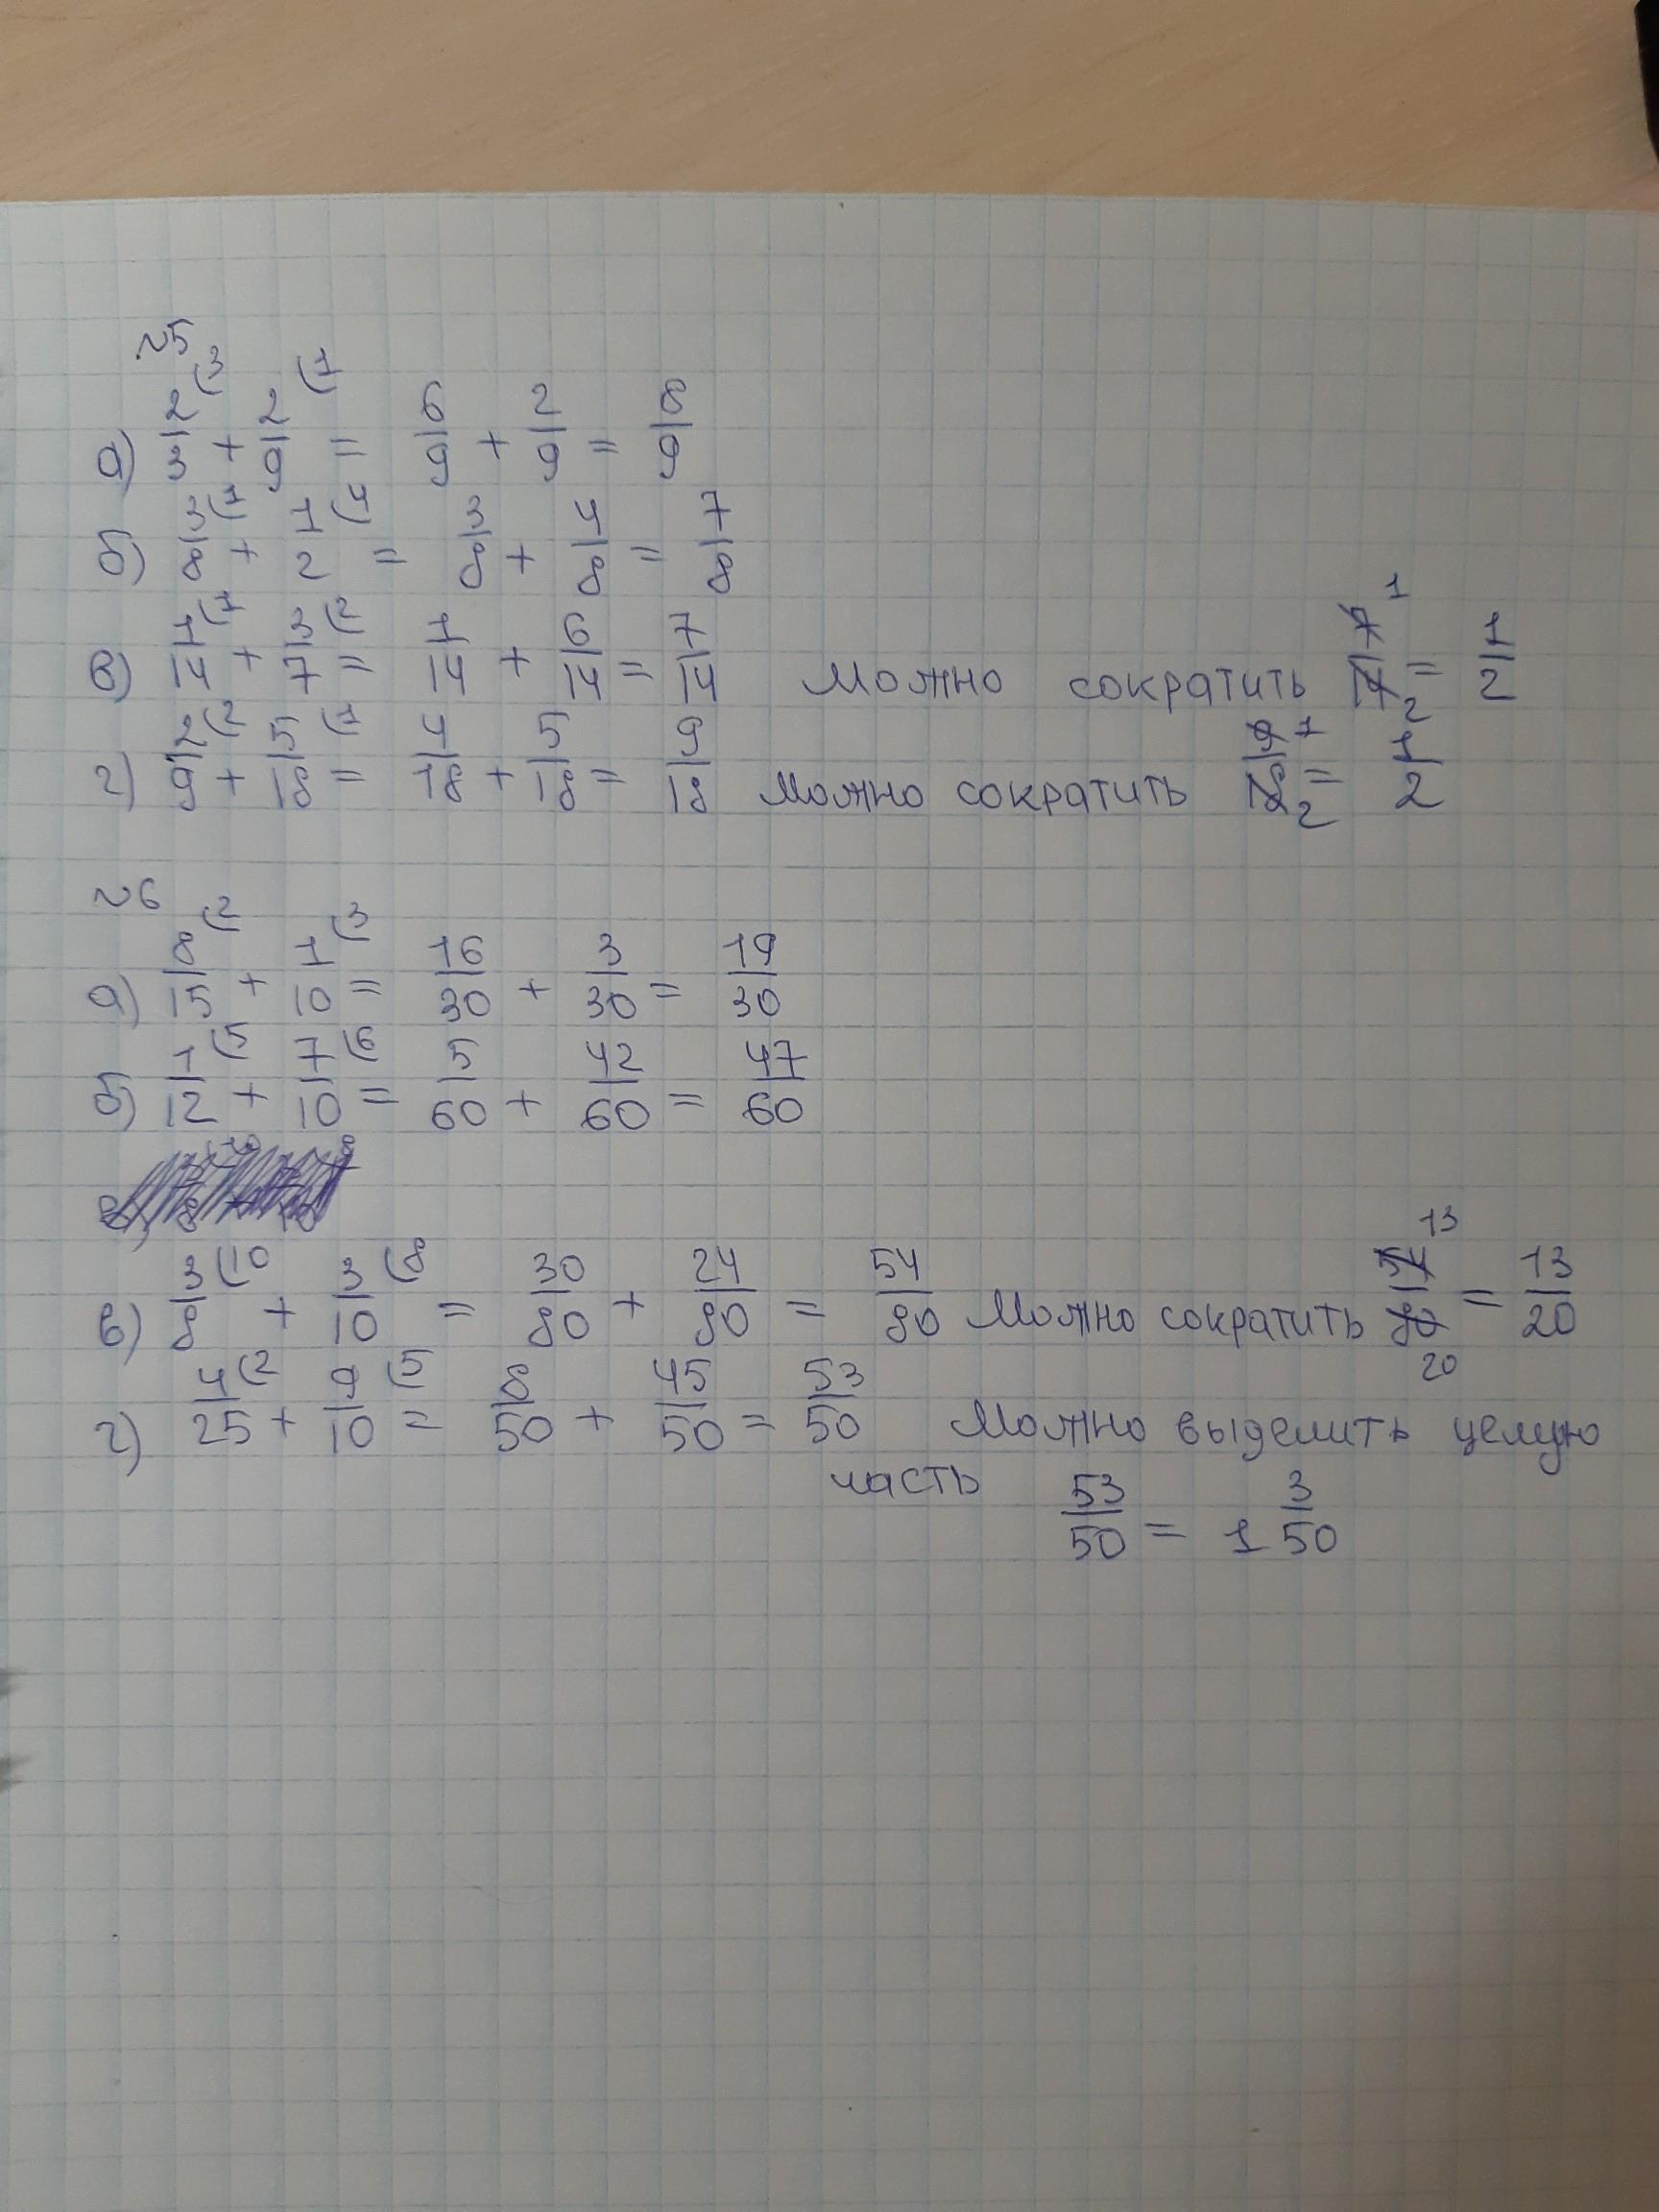 №5
а) 2/3 (3 + 2/9 (1 = 6/9 + 2/9 = 8/9
б) 3/8 (1 + 1/2 (4 = 3/8 + 4/8 = 7/8
в) 1/14 (1 + 3/7 (2 = 1/14 + 6/14 = 7/14 Можно сократить 7/14 1 2 = 1/2
г) 2/9 (2 + 5/18 (1 = 4/18 + 5/18 = 9/18 Можно сократить 9/18 1 2 = 1/2
№6
а) 8/15 (2 + 1/10 (3 = 16/30 + 3/30 = 19/30
б) 1/12 (5 + 7/10 (6 = 5/60 + 42/60 = 47/60
в) 3/8 (10 + 3/10 (8 = 30/80 + 24/80 = 54/80 Можно сократить 54/80 13 20 = 13/20
г) 4/25 (2 + 9/10 (5 = 8/50 + 45/50 = 53/50 Можно выделить целую
часть 53/50 = 1 3/50